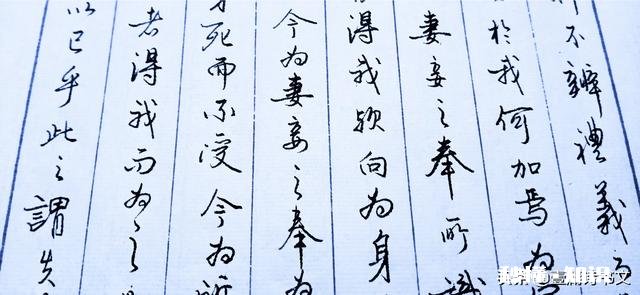 不辨禮義
於我何加焉為
妻妾之奉所識
得我欤向為身
今為妻妾之奉為
死而不受今為所
者得我而為之
以已乎此之謂失